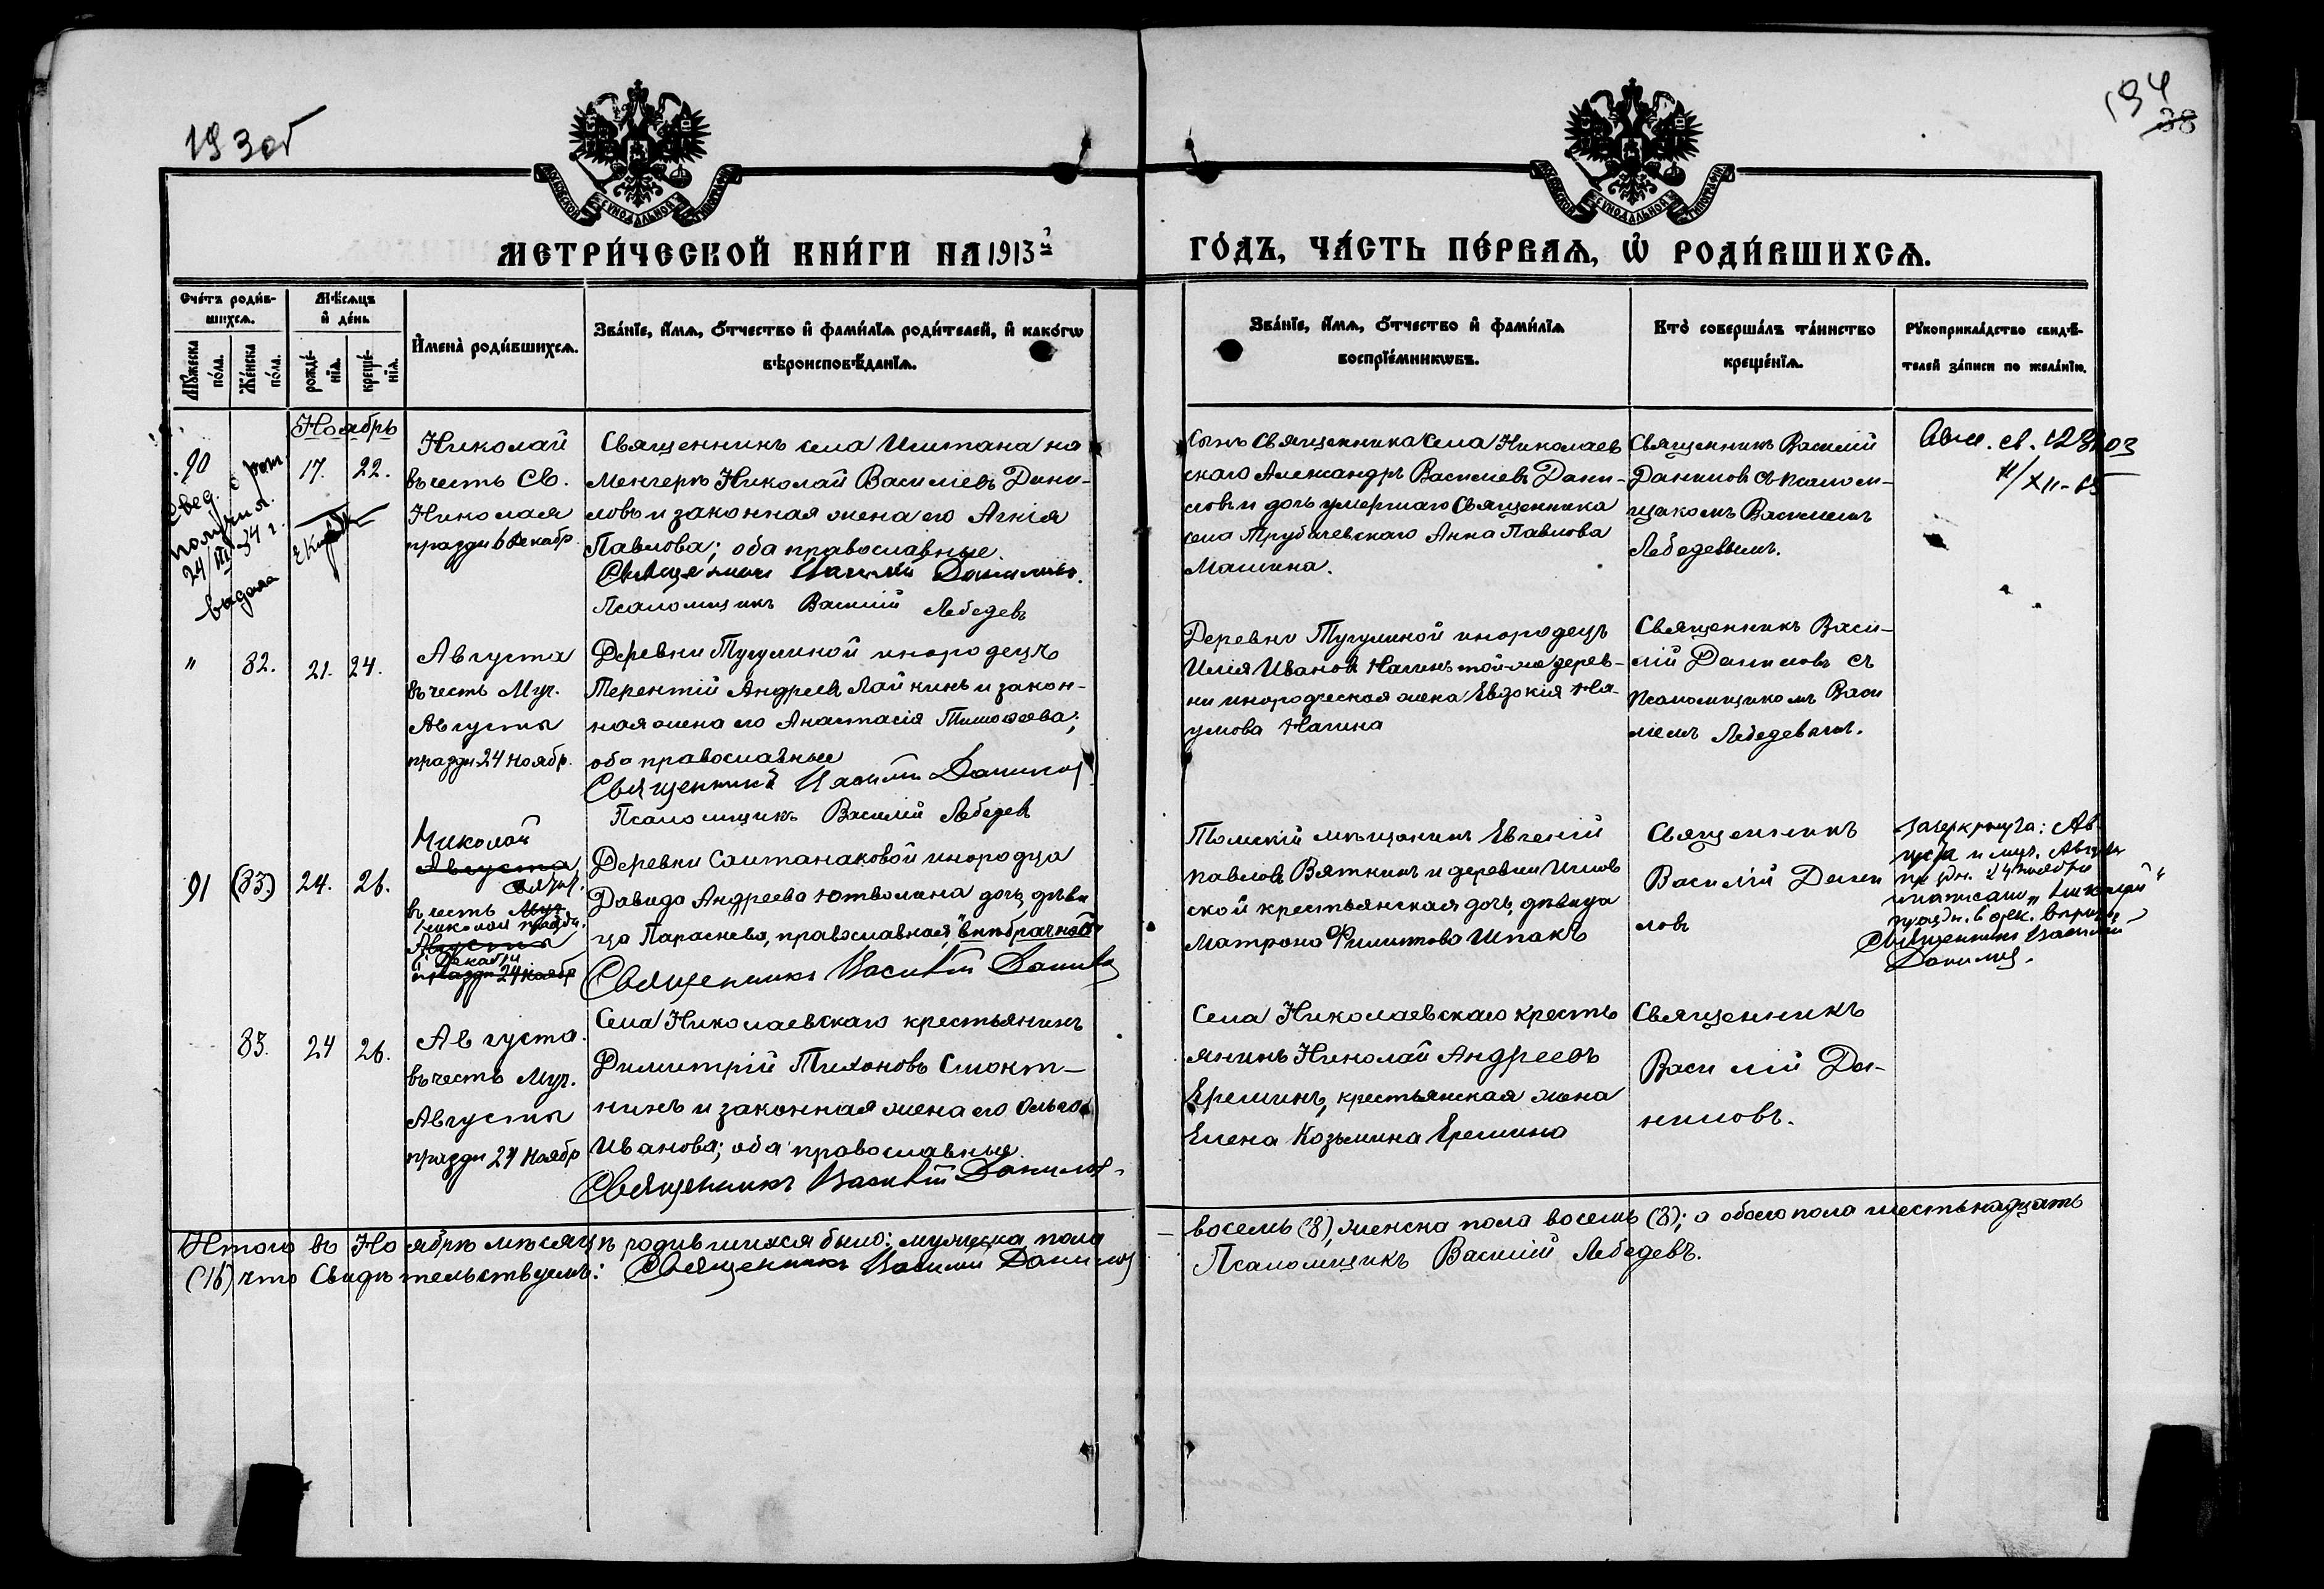 193об
194
38
МОСКОВСКОЙ СѴНОДАЛЬНОЙ ТИПОГРАФІИ
МОСКОВСКОЙ СѴНОДАЛЬНОЙ ТИПОГРАФІИ
МЕТРИ́ЧЕСКОЙ КНИ́ГИ НА 1913й
ГО́ДЪ, ЧА́СТЬ ПЕ́РВАѦ, Ѡ҆ РОДИ́ВШИХСѦ.
Сче́тъ роди́в-
шихсѧ.
Мѣ́сѧцъ
и҆ де́нь
Мꙋ́жеска
по́ла.
Же́нска
по́ла.
рожде́-
нїѧ.
креще́-
нїѧ.
И҆мена̀ роди́вшихсѧ.
Зва́нїе, и҆́мѧ, о҆́тчество и҆ фами́лїѧ роди́телей, и҆ како́гѡ
вѣроисповѣ́данїѧ.
Зва́нїе, и҆́мѧ, о҆́тчество и҆ фами́лїѧ
воспрїе́мникѡвъ.
Кто̀ соверша́лъ та́инство
креще́нїѧ.
Рꙋкоприкла́дство свидѣ́-
телей за́писи по жела́нїю.
Ноябрь
90
17. 22.
Свед. о рож.
получил.
24/III 34 г.
выдала
Николай
въ честь Св.
Николая
праздн 6 декабр
Священникъ села Иштана на
Менгерѣ Николай Василіевъ Дани-
ловъ и законная жена его Агнія
Павлова; оба православные.
Священник Василій Данилов.
Псаломщикъ Василій Лебедевъ
Сынъ Священника села Николаев
скаго Александръ Василіевъ Дани-
ловъ и дочь умершаго Священника
села Трубачевскаго Анна Павлова
Машина.
Священникъ Василій
Даниловъ съ псалом-
щикомъ Василіемъ
Лебедевымъ.
" 82. 21. 24.
Августа
въ честь Муч.
Августы
праздн 24 ноябр.
Деревни Тугулиной инородецъ
Терентій Андреевъ Лайкинъ и закон-
ная жена его Анастасія Тимофеева;
оба православные
Священникъ Василій Данилов
Псаломщикъ Василій Лебедев
Деревни Тугулиной инородецъ
Илія Ивановъ Нагинъ той-же дерев-
ни инородческая жена Евдокія На-
умова Нагина
Священникъ Васи-
лій Даниловъ съ
псаломщикомъ Васи
ліемъ Лебедевымъ.
91 (83) 24. 26.
Николай
Августа
въ честь Муч.
Николая праздн.
Августы
6 декабря
праздн 24 ноябр
Деревни Салтанаковой инородца
Давида Андреева дочь, дѣви
ца Параскева, православная, "внѣбрачной"
Священникъ Василій Данилов
Томскій мѣщанинъ Евгеній
Павловъ Вяткинъ и деревни Иглов
ской крестьянская дочь, дѣвица
Матрона Филиппова Шпакъ
Священникъ
Василій Дани
ловъ
Зачеркнуто: Ав
густа и муч. Августы
праздн. 24 ноября
написано „Николай"
праздн. 6 дек. вѣрить
Священникъ Василій
Данилов.
83. 24 26.
Августа.
въ честь Муч.
Августы
праздн 24 ноябр
Села Николаевскаго крестьянинъ
Димитрій Тихоновъ Смокт-
нинъ и законная жена его Ольга
Иванова; оба православные.
Священникъ Василій Данилов.
Села Николаевскаго кресть
янинъ Николай Андреевъ
Еремин, крестьянская жена
Елена Козьмина Еремина
Священникъ
Василій Да-
ниловъ.
Итого въ Ноябрѣ мѣсяцѣ родившихся было: мужеска пола
восемь (8), женска пола восемь (8); а обоего пола шестьнадцать
(16) что Свидѣтельствуемъ: Священникъ Василій Данилов
Псаломщикъ Василій Лебедевъ.